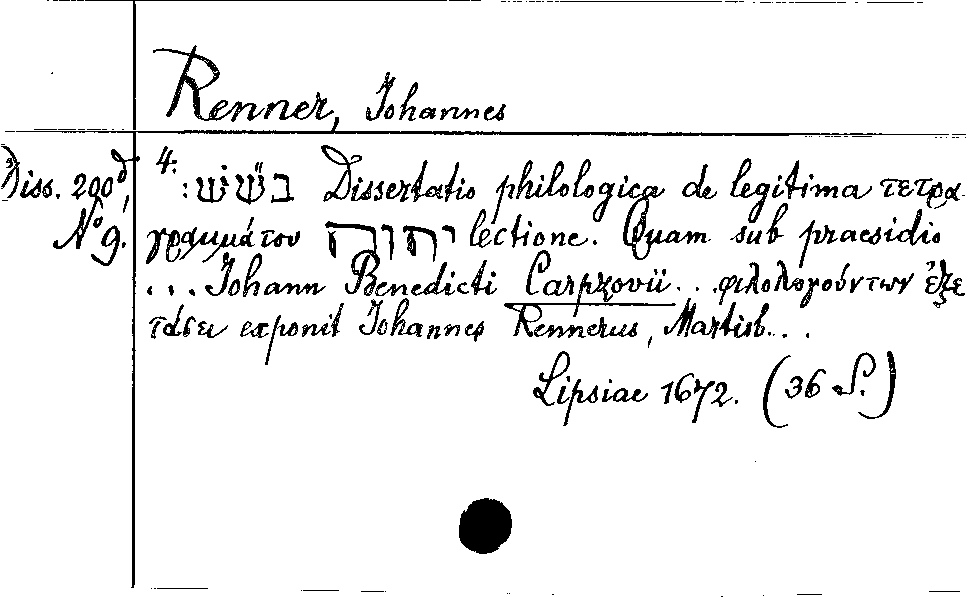 Renner, Johannes
Diss. 200ᵈ,
N° 9.
4: בשׂשׁ: Dissertatio philologica de legitima τετρα-
γραμμάτου יהוה lectione. Quam sub praesidio
... Johann Benedicti Carpzovii... φιλολογούντων ἐξε
τάσει exponit Johannes Rennerus, Martisb...
Lipsiae 1672. (36 S.)